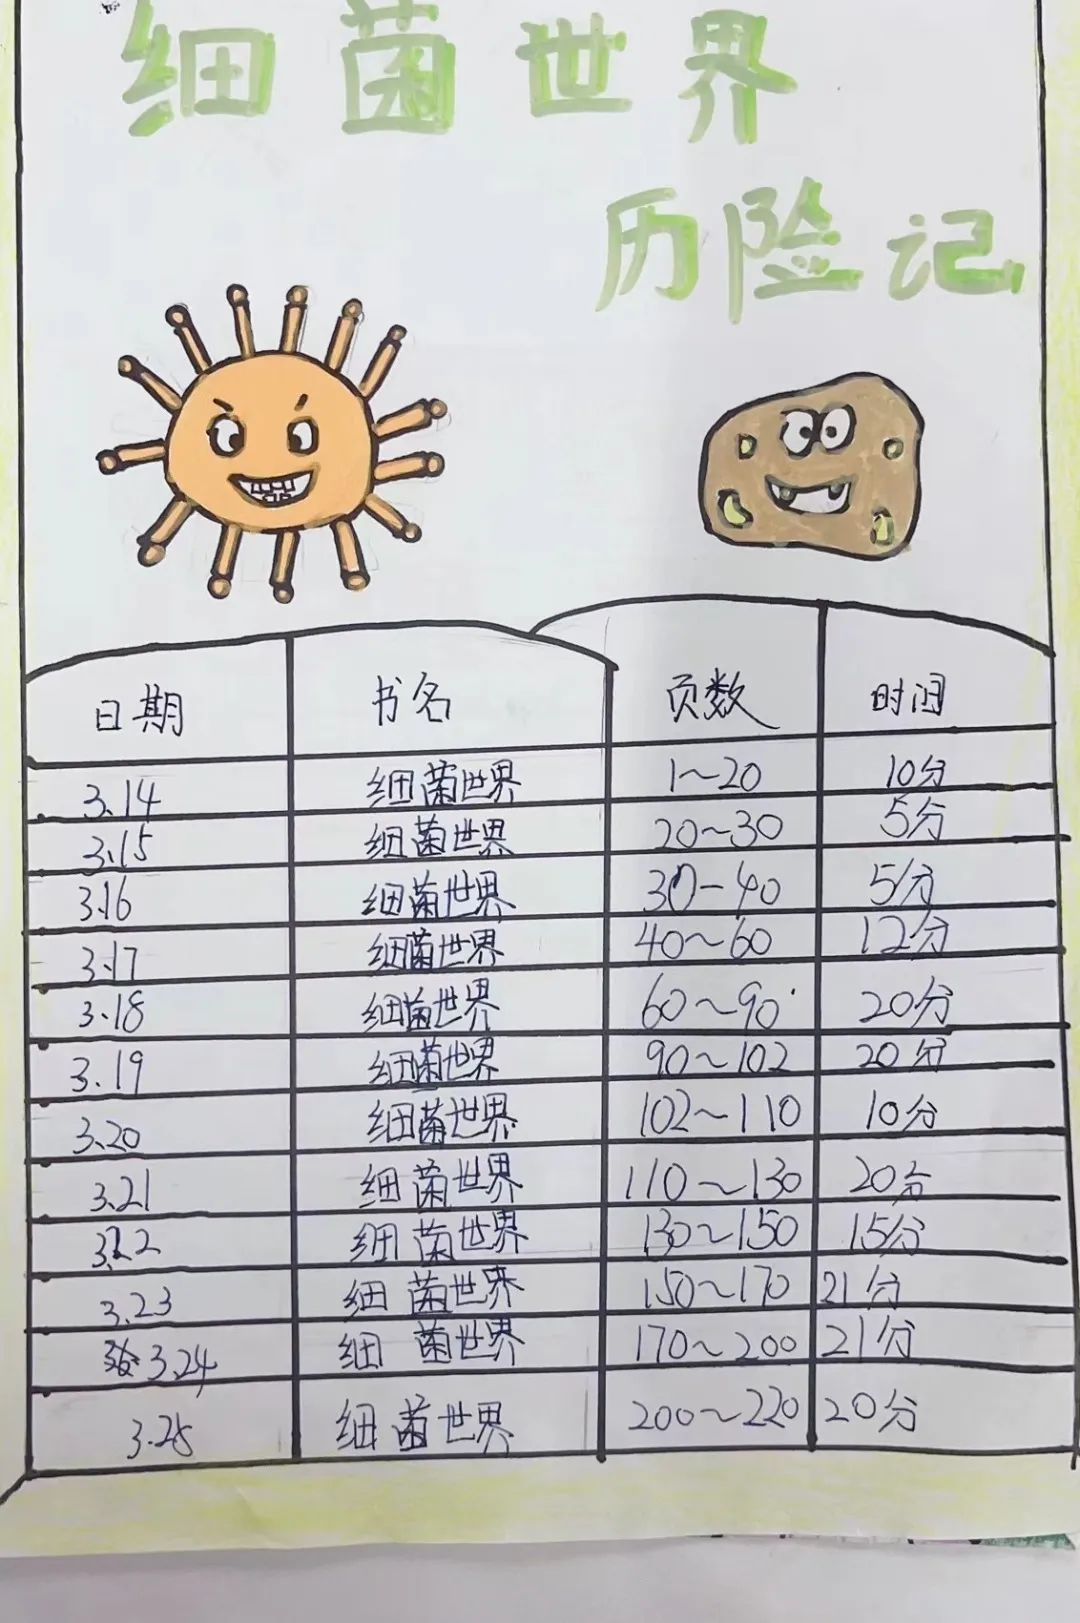 细菌世界
历险记
日期 书名 页数 时间
3.14 细菌世界 1~20 10分
3.15 细菌世界 20~30 5分
3.16 细菌世界 30-40 5分
3.17 细菌世界 40~60 12分
3.18 细菌世界 60~90 20分
3.19 细菌世界 90~102 20分
3.20 细菌世界 102~110 10分
3.21 细菌世界 110~130 20分
3.22 细菌世界 130~150 15分
3.23 细菌世界 150~170 21分
3.24 细菌世界 170~200 21分
3.25 细菌世界 200~220 20分